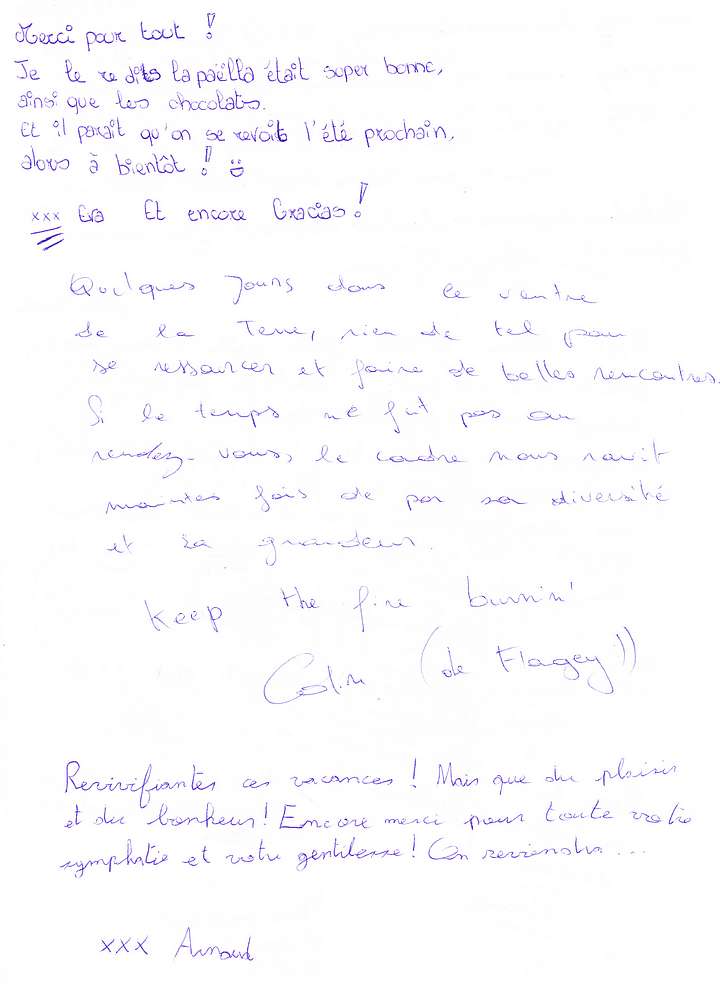 Merci pour tout !
Je le redis la paëlla était super bonne,
ainsi que les chocolats.
Et il paraît qu'on se revoit l'été prochain,
alors à bientôt !
xxx Eva Et encore Gracias !
Quelques jours dans le ventre
de la Terre, rien de tel pour
se ressourcer et faire de belles rencontres.
Si le temps ne fut pas au
rendez-vous, le cadre nous ravit
maintes fois de par sa diversité
et sa grandeur.
Keep the fire burnin'
Colin (de Flagey))
Revivifiantes ces vacances ! Mais que du plaisir
et du bonheur ! Encore merci pour toute votre
symphatie et votre gentilesse ! On reviendra ...
xxx Arnaud